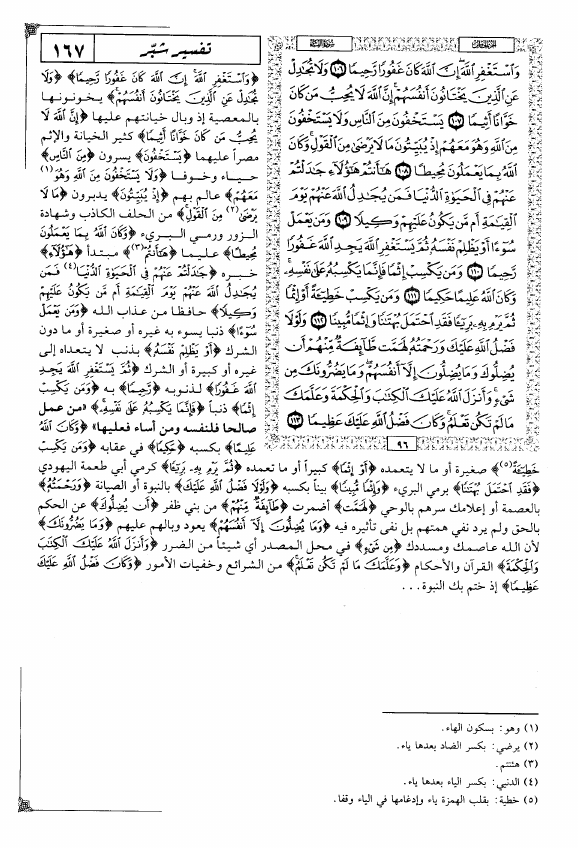 ١٦٧
تفسير شبّر
سورة النساء
وَاسْتَغْفِرِ اللَّهَ إِنَّ اللَّهَ كَانَ غَفُورًا رَّحِيمًا ١٠٦ وَلَا تُجَادِلْ
عَنِ الَّذِينَ يَخْتَانُونَ أَنفُسَهُمْ إِنَّ اللَّهَ لَا يُحِبُّ مَن كَانَ
خَوَّانًا أَثِيمًا ١٠٧ يَسْتَخْفُونَ مِنَ النَّاسِ وَلَا يَسْتَخْفُونَ
مِنَ اللَّهِ وَهُوَ مَعَهُمْ إِذْ يُبَيِّتُونَ مَا لَا يَرْضَىٰ مِنَ الْقَوْلِ وَكَانَ
اللَّهُ بِمَا يَعْمَلُونَ مُحِيطًا ١٠٨ هَا أَنتُمْ هَٰؤُلَاءِ جَادَلْتُمْ
عَنْهُمْ فِي الْحَيَاةِ الدُّنْيَا فَمَن يُجَادِلُ اللَّهَ عَنْهُمْ يَوْمَ
الْقِيَامَةِ أَم مَّن يَكُونُ عَلَيْهِمْ وَكِيلًا ١٠٩ وَمَن يَعْمَلْ
سُوءًا أَوْ يَظْلِمْ نَفْسَهُ ثُمَّ يَسْتَغْفِرِ اللَّهَ يَجِدِ اللَّهَ غَفُورًا
رَّحِيمًا ١١٠ وَمَن يَكْسِبْ إِثْمًا فَإِنَّمَا يَكْسِبُهُ عَلَىٰ نَفْسِهِ
وَكَانَ اللَّهُ عَلِيمًا حَكِيمًا ١١١ وَمَن يَكْسِبْ خَطِيئَةً أَوْ إِثْمًا
ثُمَّ يَرْمِ بِهِ بَرِيئًا فَقَدِ احْتَمَلَ بُهْتَانًا وَإِثْمًا مُّبِينًا ١١٢ وَلَوْلَا
فَضْلُ اللَّهِ عَلَيْكَ وَرَحْمَتُهُ لَهَمَّت طَّائِفَةٌ مِّنْهُمْ أَن
يُضِلُّوكَ وَمَا يُضِلُّونَ إِلَّا أَنفُسَهُمْ وَمَا يَضُرُّونَكَ مِن
شَيْءٍ وَأَنزَلَ اللَّهُ عَلَيْكَ الْكِتَابَ وَالْحِكْمَةَ وَعَلَّمَكَ
مَا لَمْ تَكُن تَعْلَمُ وَكَانَ فَضْلُ اللَّهِ عَلَيْكَ عَظِيمًا ١١٣
٩٦
﴿وَاسْتَغْفِرِ اللَّهَ إِنَّ اللَّهَ كَانَ غَفُورًا رَّحِيمًا﴾ ﴿وَلَا
تُجَادِلْ عَنِ الَّذِينَ يَخْتَانُونَ أَنفُسَهُمْ﴾ يخونونها
بالمعصية إذ وبال خيانتهم عليها ﴿إِنَّ اللَّهَ لَا
يُحِبُّ مَن كَانَ خَوَّانًا أَثِيمًا﴾ كثير الخيانة والإثم
مصراً عليهما ﴿يَسْتَخْفُونَ﴾ يسرون ﴿مِنَ النَّاسِ﴾
حياء وخوفا ﴿وَلَا يَسْتَخْفُونَ مِنَ اللَّهِ وَهُوَ (١)
مَعَهُمْ﴾ عالم بهم ﴿إِذْ يُبَيِّتُونَ﴾ يدبرون ﴿مَا لَا
يَرْضَىٰ (٢) مِنَ الْقَوْلِ﴾ من الحلف الكاذب وشهادة
الزور ورمي البريء ﴿وَكَانَ اللَّهُ بِمَا يَعْمَلُونَ
مُحِيطًا﴾ عليما ﴿هَا أَنتُمْ (٣)﴾ مبتدأ ﴿هَٰؤُلَاءِ﴾
خبره ﴿جَادَلْتُمْ عَنْهُمْ فِي الْحَيَاةِ الدُّنْيَا (٤) فَمَن
يُجَادِلُ اللَّهَ عَنْهُمْ يَوْمَ الْقِيَامَةِ أَم مَّن يَكُونُ عَلَيْهِمْ
وَكِيلًا﴾ حافظا من عذاب الله ﴿وَمَن يَعْمَلْ
سُوءًا﴾ ذنبا يسوء به غيره أو صغيرة أو ما دون
الشرك ﴿أَوْ يَظْلِمْ نَفْسَهُ﴾ بذنب لا يتعداه إلى
غيره أو كبيرة أو الشرك ﴿ثُمَّ يَسْتَغْفِرِ اللَّهَ يَجِدِ
اللَّهَ غَفُورًا﴾ لذنوبه ﴿رَّحِيمًا﴾ به ﴿وَمَن يَكْسِبْ
إِثْمًا﴾ ذنباً ﴿فَإِنَّمَا يَكْسِبُهُ عَلَىٰ نَفْسِهِ﴾ «من عمل
صالحا فلنفسه ومن أساء فعليها» ﴿وَكَانَ اللَّهُ
عَلِيمًا﴾ بكسبه ﴿حَكِيمًا﴾ في عقابه ﴿وَمَن يَكْسِبْ
خَطِيئَةً (٥)﴾ صغيرة أو ما لا يتعمده ﴿أَوْ إِثْمًا﴾ كبيراً أو ما تعمده ﴿ثُمَّ يَرْمِ بِهِ بَرِيئًا﴾ كرمي أبي طعمة اليهودي
﴿فَقَدِ احْتَمَلَ بُهْتَانًا﴾ برمي البريء ﴿وَإِثْمًا مُّبِينًا﴾ بيناً بكسبه ﴿وَلَوْلَا فَضْلُ اللَّهِ عَلَيْكَ﴾ بالنبوة أو الصيانة ﴿وَرَحْمَتُهُ﴾
بالعصمة أو إعلامك سرهم بالوحي ﴿لَهَمَّت﴾ أضمرت ﴿طَّائِفَةٌ مِّنْهُمْ﴾ من بني ظفر ﴿أَن يُضِلُّوكَ﴾ عن الحكم
بالحق ولم يرد نفي همتهم بل نفى تأثيره فيه ﴿وَمَا يُضِلُّونَ إِلَّا أَنفُسَهُمْ﴾ يعود وبالهم عليهم ﴿وَمَا يَضُرُّونَكَ﴾
لأن الله عاصمك ومسددك ﴿مِن شَيْءٍ﴾ في محل المصدر أي شيئاً من الضرر ﴿وَأَنزَلَ اللَّهُ عَلَيْكَ الْكِتَابَ
وَالْحِكْمَةَ﴾ القرآن والأحكام ﴿وَعَلَّمَكَ مَا لَمْ تَكُن تَعْلَمُ﴾ من الشرائع وخفيات الأمور ﴿وَكَانَ فَضْلُ اللَّهِ عَلَيْكَ
عَظِيمًا﴾ إذ ختم بك النبوة...
(١) وهو: بسكون الهاء.
(٢) يرضي: بكسر الضاد بعدها ياء.
(٣) هئنتم.
(٤) الدنيي: بكسر الياء بعدها ياء.
(٥) خطية: بقلب الهمزة ياء وإدغامها في الياء وقفا.